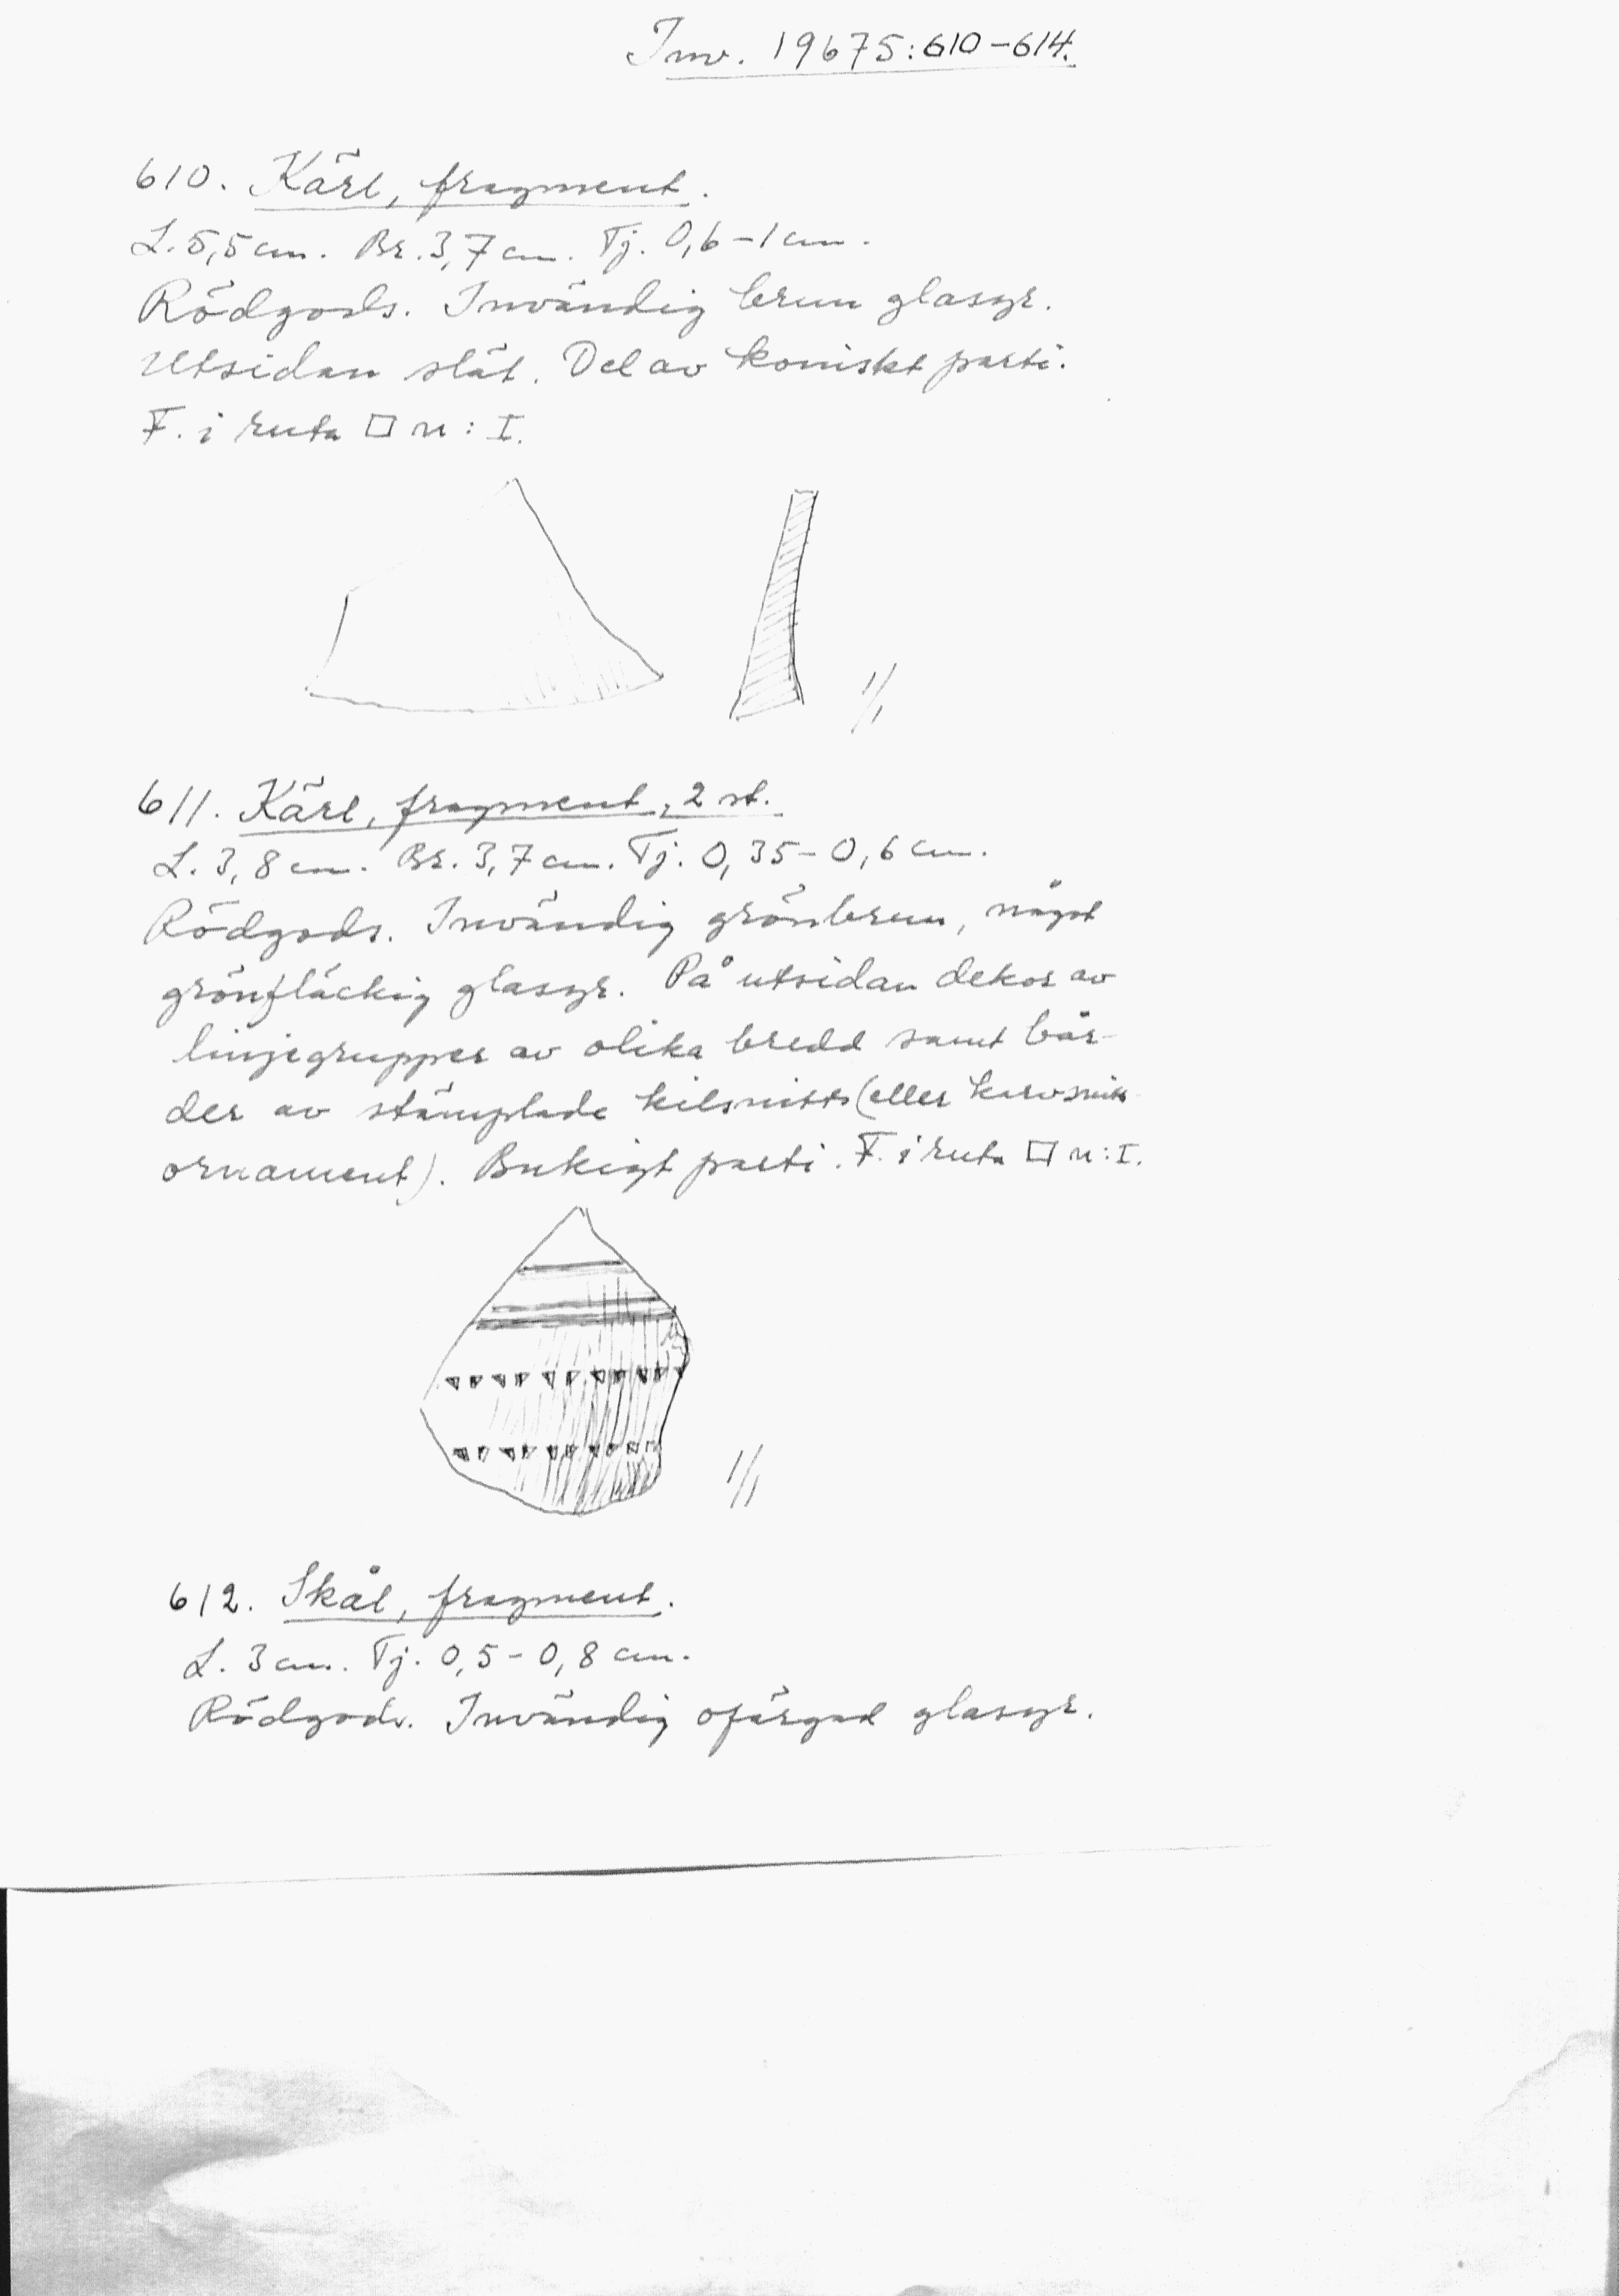 Inv. 19675:610-614.
610. Kärl, fragment.
L. 5,5 cm. Br. 3,7 cm. Tj. 0,6-1 cm.
Rödgods. Invändig brun glasyr.
Utsidan slät. Del av koniskt parti.
F. i ruta □ n: I.
1/1
611. Kärl, fragment, 2 st.
L. 3,8 cm. Br. 3,7 cm. Tj. 0,35-0,6 cm.
Rödgods. Invändig grönbrun, något
grönfläckig glasyr. På utsidan dekor av
linjegrupper av olika bredd samt bår-
der av stämplade kilsnitts (eller karvsnitts
ornament). Bukigt parti. F. i ruta □ n: I.
1/1
612. Skål, fragment.
L. 3 cm. Tj. 0,5-0,8 cm.
Rödgods. Invändig ofärgad glasyr.